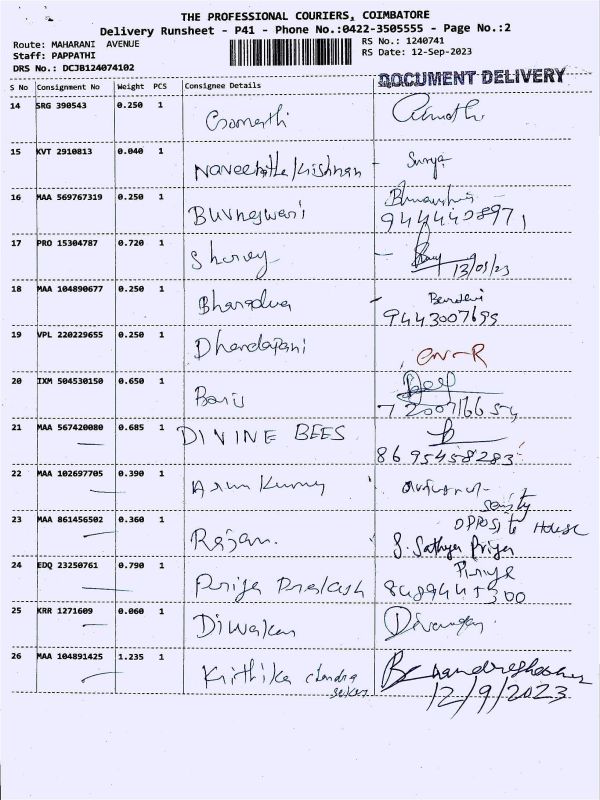 THE PROFESSIONAL COURIERS, COIMBATORE
Delivery Runsheet - P41 - Phone No.:0422-3505555 - Page No.:2
Route: MAHARANI AVENUE RS No.: 1240741
Staff: PAPPATHI RS Date: 12-Sep-2023
DRS No.: DCJB124074102
DOCUMENT DELIVERY
S No Consignment No Weight PCS Consignee Details Signature
14 SRG 390543 0.250 1
15 KVT 2910813 0.040 1 Surya
16 MAA 569767319 0.250 1 Buvneswari
17 PRO 15304787 0.720 1 13/09/23
18 MAA 104890677 0.250 1
9443007695
19 VPL 220229655 0.250 1 Dhandapani
20 IXM 504530150 0.650 1
21 MAA 567420080 0.685 1 DIVINE BEES B
8695458283
22 MAA 102697705 0.390 1 Arun Kumar
opposite House
23 MAA 861456502 0.360 1 Rajan. S. Sathya Priya
24 EDQ 23250761 0.790 1 Priya Prakash
25 KRR 1271609 0.060 1 Diwakar
26 MAA 104891425 1.235 1 Krithika chandra
sekar
12/9/2023